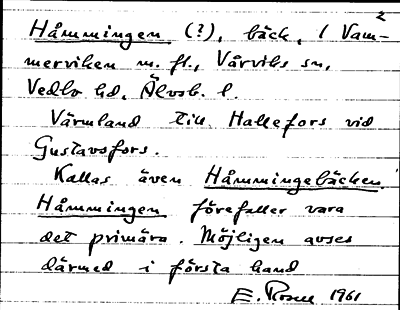 Håmmingen (?), bäck, i Vam-
merviken m. fl., Vårviks sn,
Vedbo hd, Älvsb. l.
Värmland till Hallefors vid
Gustavsfors.
Kallas även Håmmingebäcken.
Håmmingen förefaller vara
det primära. Möjligen avses
därmed i första hand
E. Rosell 1961